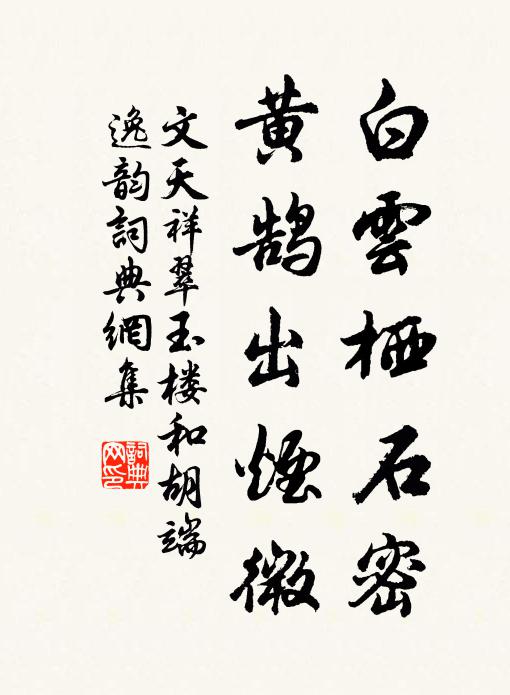 白雲栖石密
黃鹄出煙微
文天祥翠玉楼和胡端
逸韵詞典網集
詞典网印